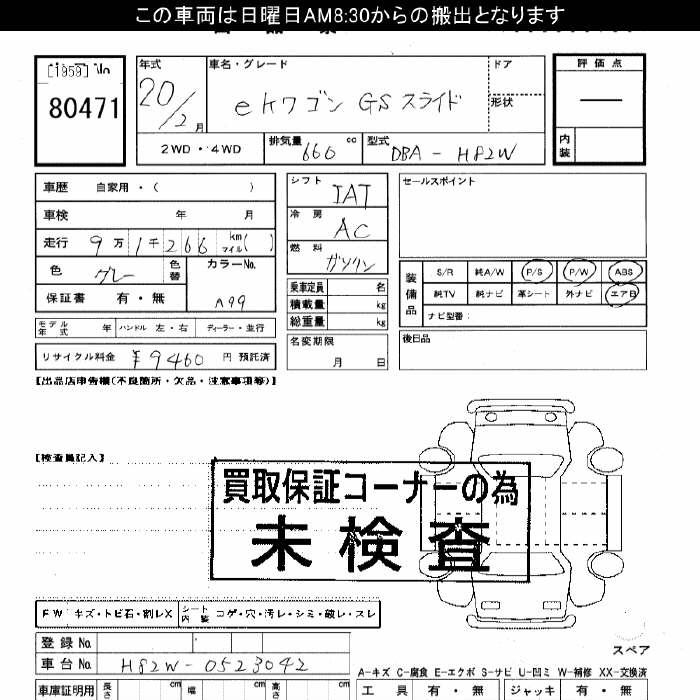 この車両は日曜日AM8:30からの搬出となります
[1959] No
80471
年式
20/2月
車名・グレード
ekワゴン GS スライド
ドア
形状
評価点
—
内装
2WD・4WD
排気量 660 cc
型式 DBA-H82W
車歴 自家用・( )
車検 年 月
走行 9万1千266 km マイル( )
色 グレー 色替
カラーNo. A99
保証書 有・無
モデル年式 年 ハンドル 左・右 ディーラー・並行
リサイクル料金 ¥9460 円 預託済
シフト IAT
冷房 AC
燃料 ガソリン
乗車定員 名
積載量 kg
総重量 kg
名変期限
月 日
セールスポイント
装備品
S/R 純A/W P/S P/W ABS
純TV 純ナビ 革シート 外ナビ エアB
ナビ型番:
後日品
【出品店申告欄(不良箇所・欠品・注意事項等)】
【検査員記入】
買取保証コーナーの為
未検査
FW キズ・トビ石・割レX シート内装 コゲ・穴・汚レ・シミ・破レ・スレ
登録No.
車台No. H82W-0523042
車庫証明用 長さ cm 幅 cm 高さ cm
スペア
A-キズ C-腐食 E-エクボ S-サビ U-凹ミ W-補修 XX-交換済
工具 有・無 ジャッキ 有・無